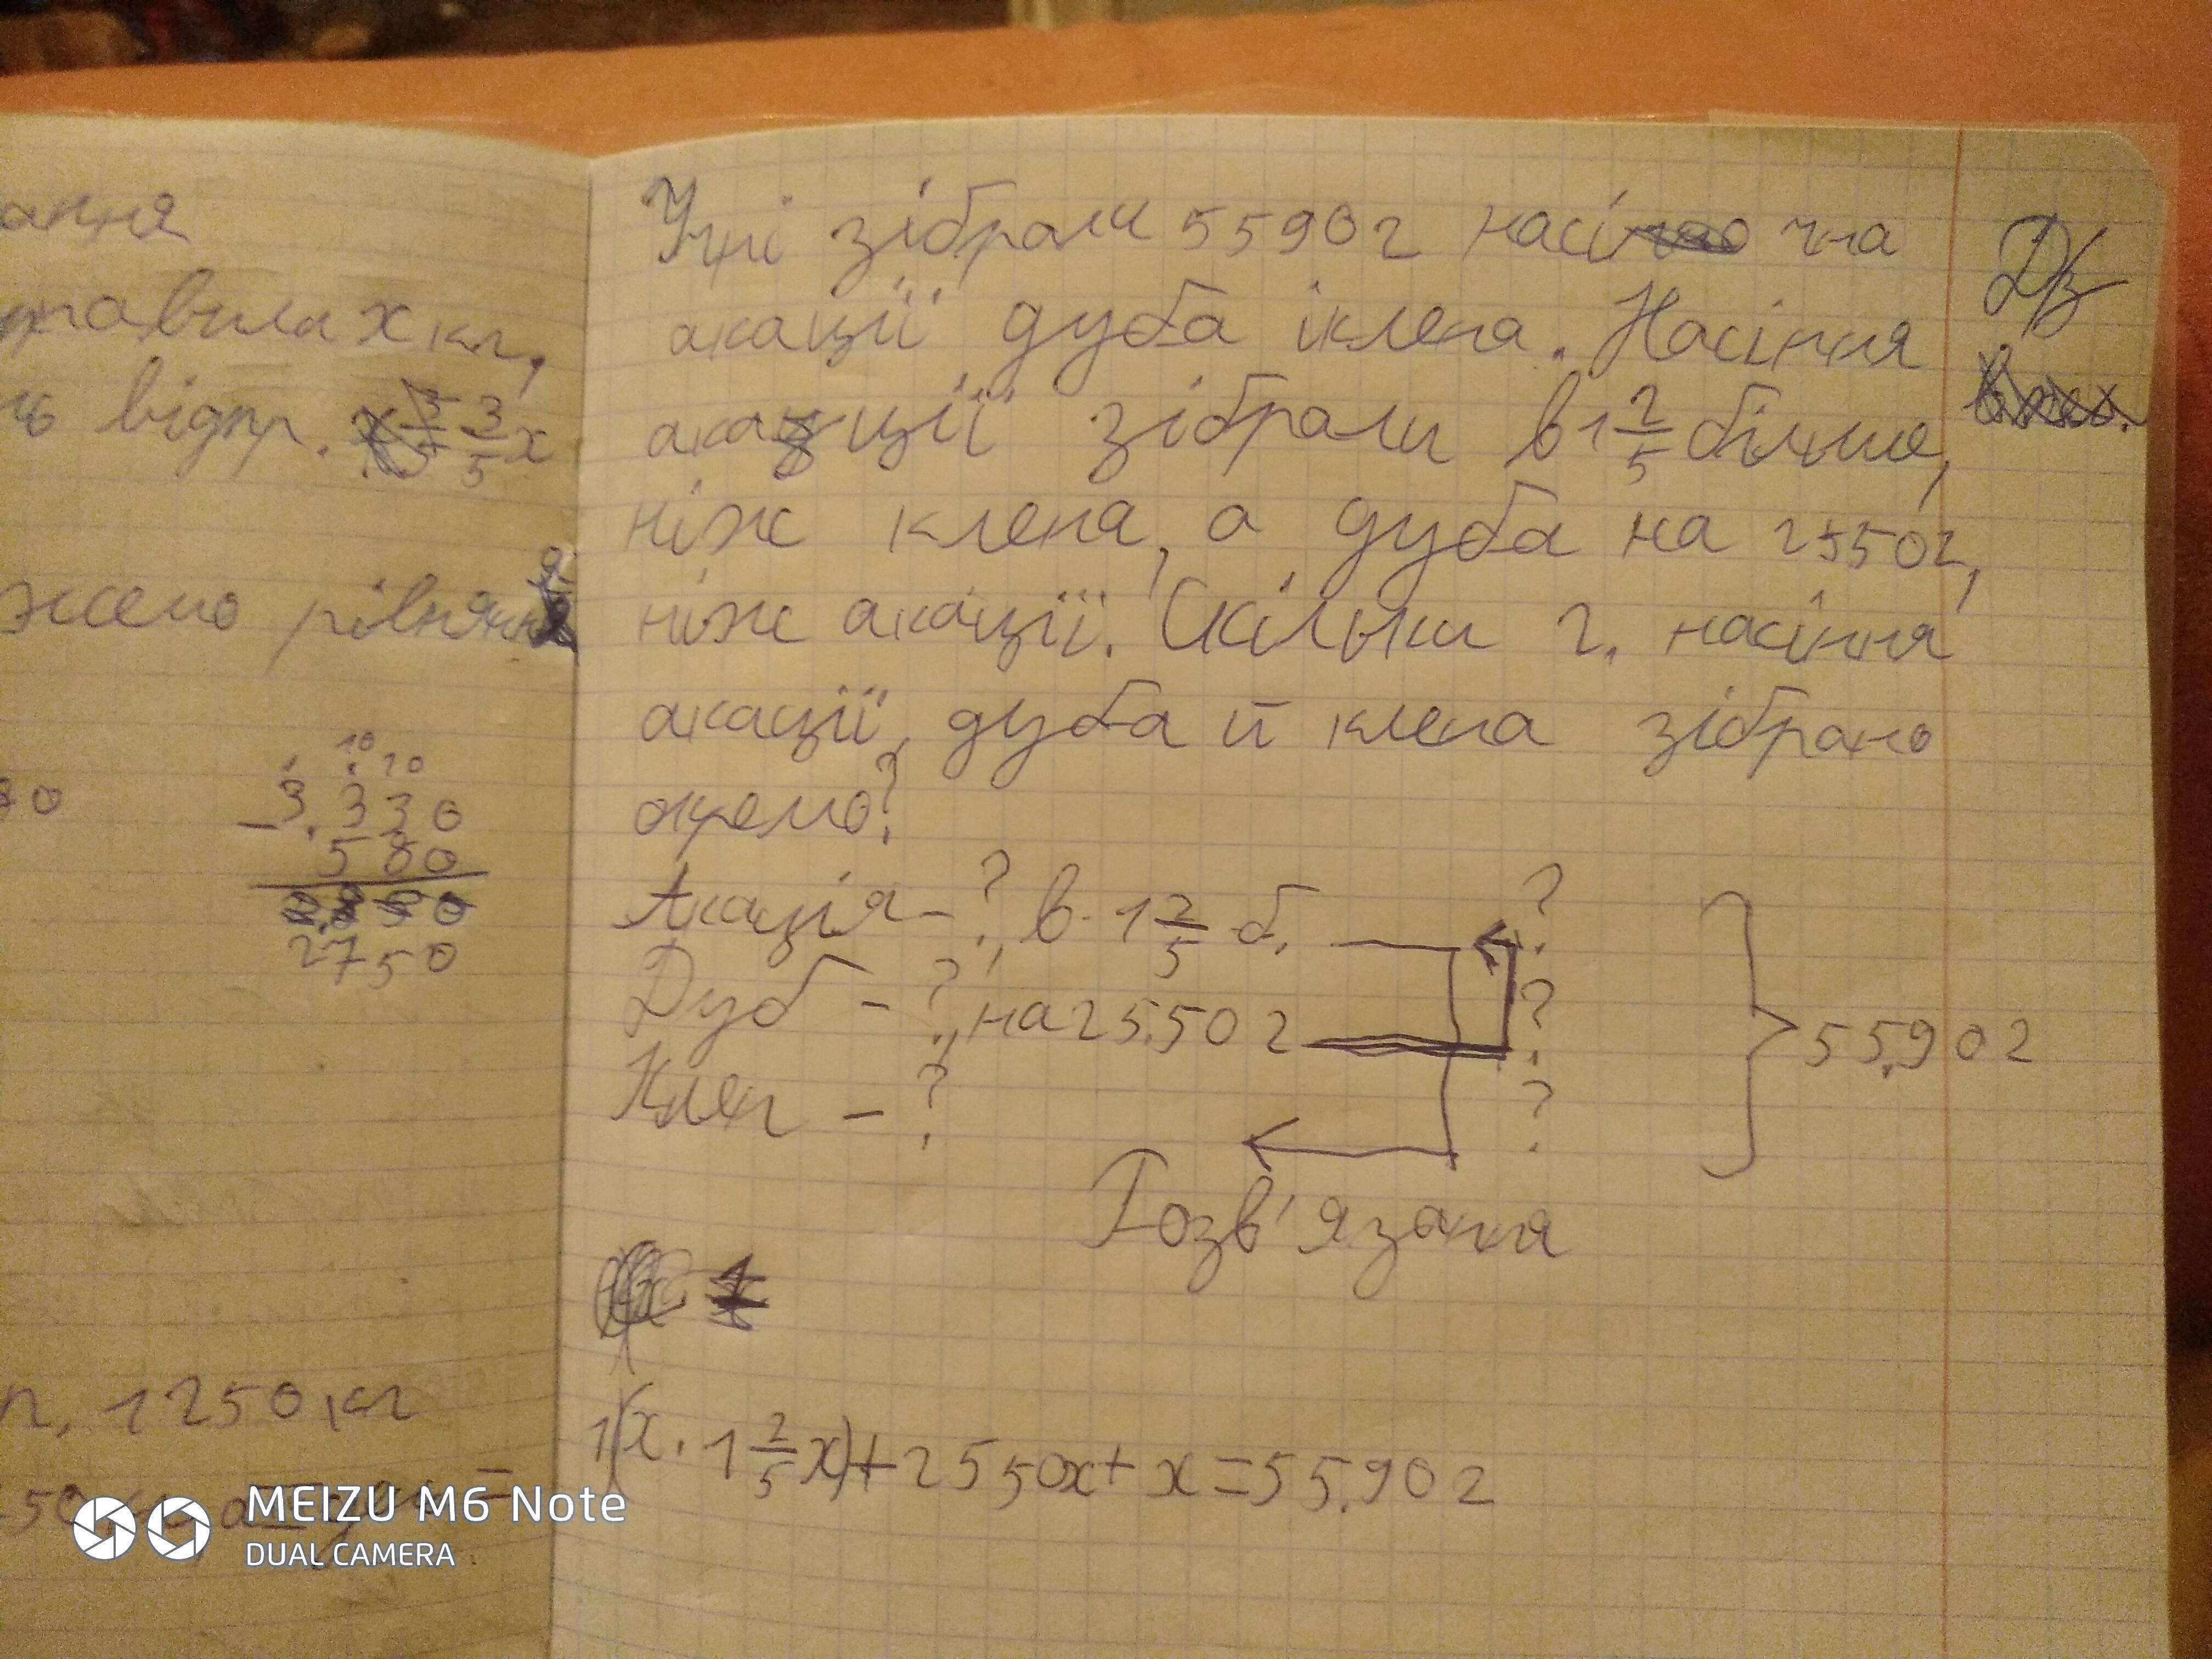 ання
правила х кг,
ь відпр. 3/5 х
жемо рівняння
3.330
580
2750
п, 1250 кг
Учні зібрали 5590 г насі ння
акації дуба і клена. Насіння
акації зібрали в 1 2/5 більше,
ніж клена, а дуба на 2550 г,
ніж акації. Скільки г. насіння
акації, дуба й клена зібрано
окремо?
ДЗ
Акація - ?, в 1 2/5 б. ?
Дуб - ?, на 2550 г ?
Клен - ? ?
5590 г
Розв'язання
1(х · 1 2/5 х) + 2550х + х = 5590 г
MEIZU M6 Note
DUAL CAMERA